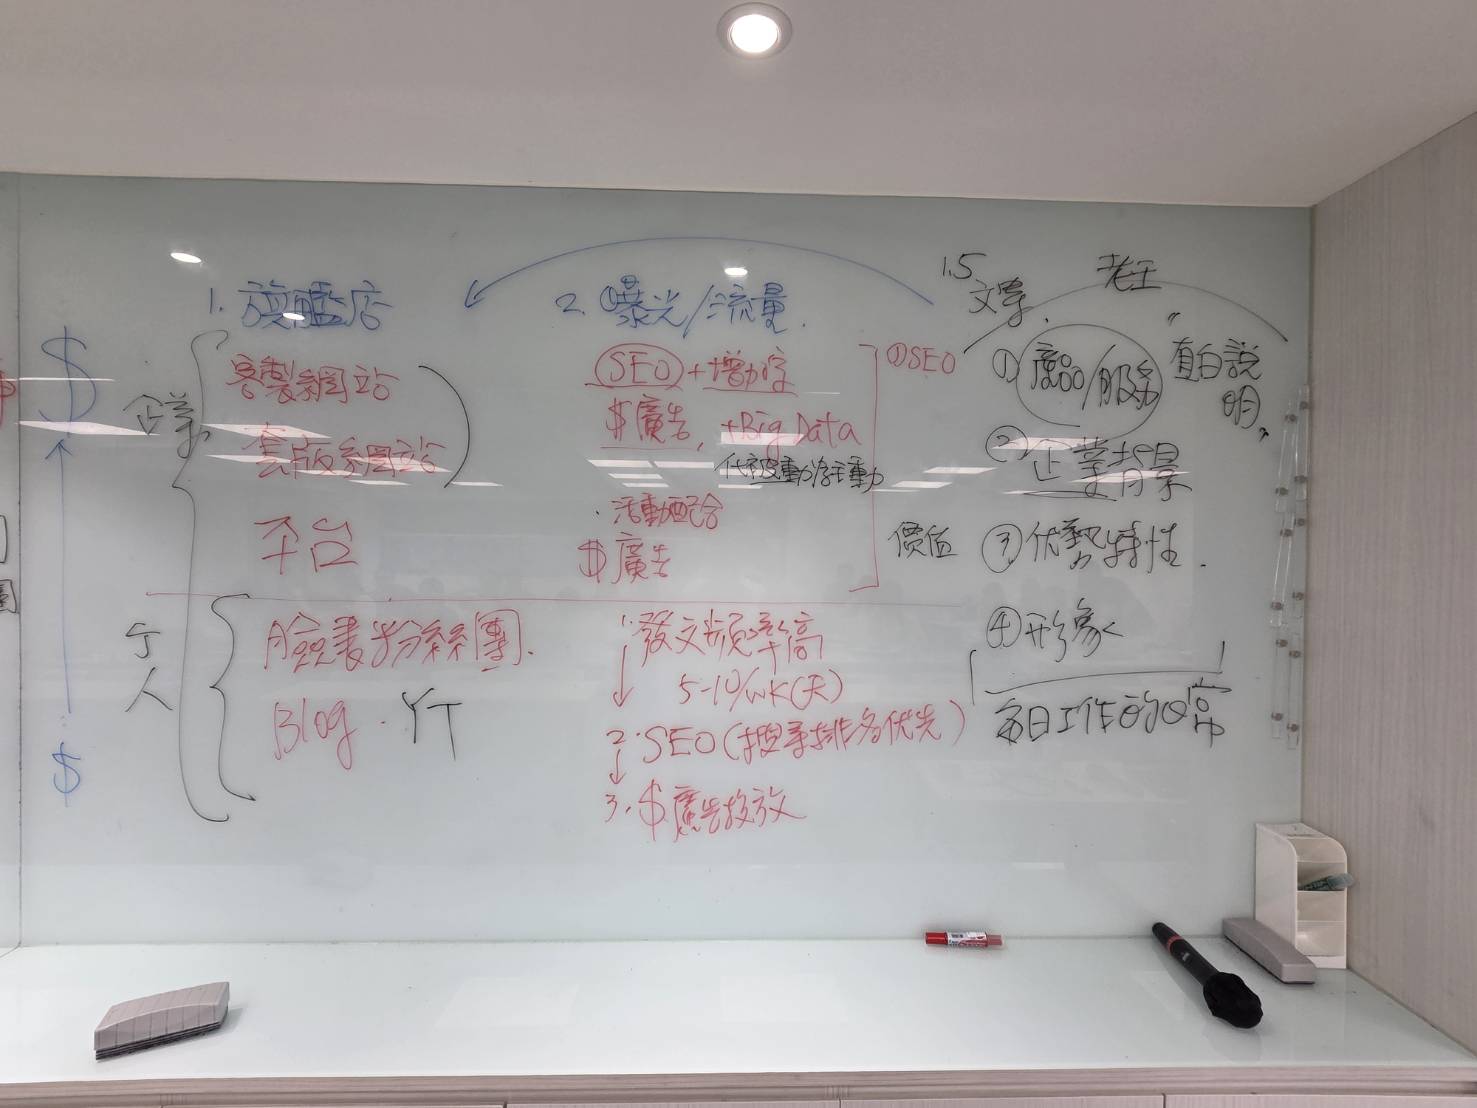 1. 旗艦店
企業
客製網站
套版網站
平台
個人
臉書粉絲團.
Blog. YT
$
$
2. 曝光/流量.
SEO +增加
$廣告, +Big Data
化被動為主動
. 活動配合
$廣告
1. 發文頻率高
5-10/wk(天)
2. SEO(搜尋排名優先)
3. $廣告投放
1.5
文章.
老王
①SEO
價值
①產品/服務
"直白說
明"
②企業背景
③優勢特性.
④形象
每日工作的日常